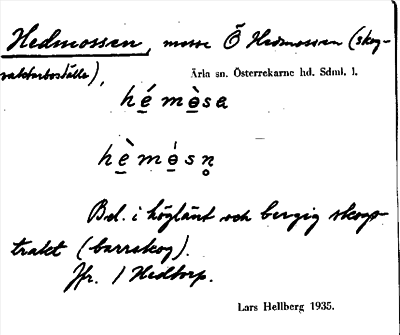 Hedmossen, mosse Ö Hedmossen (skog-
vaktarboställe),
Ärla sn. Österrekarne hd. Sdml. 1.
hé̱mɵ̱̀sa
hè̱mɵ̱́sn̥
Bel. i höglänt och bergig skogs-
trakt (barrskog).
Jfr. 1 Hedtorp.
Lars Hellberg 1935.